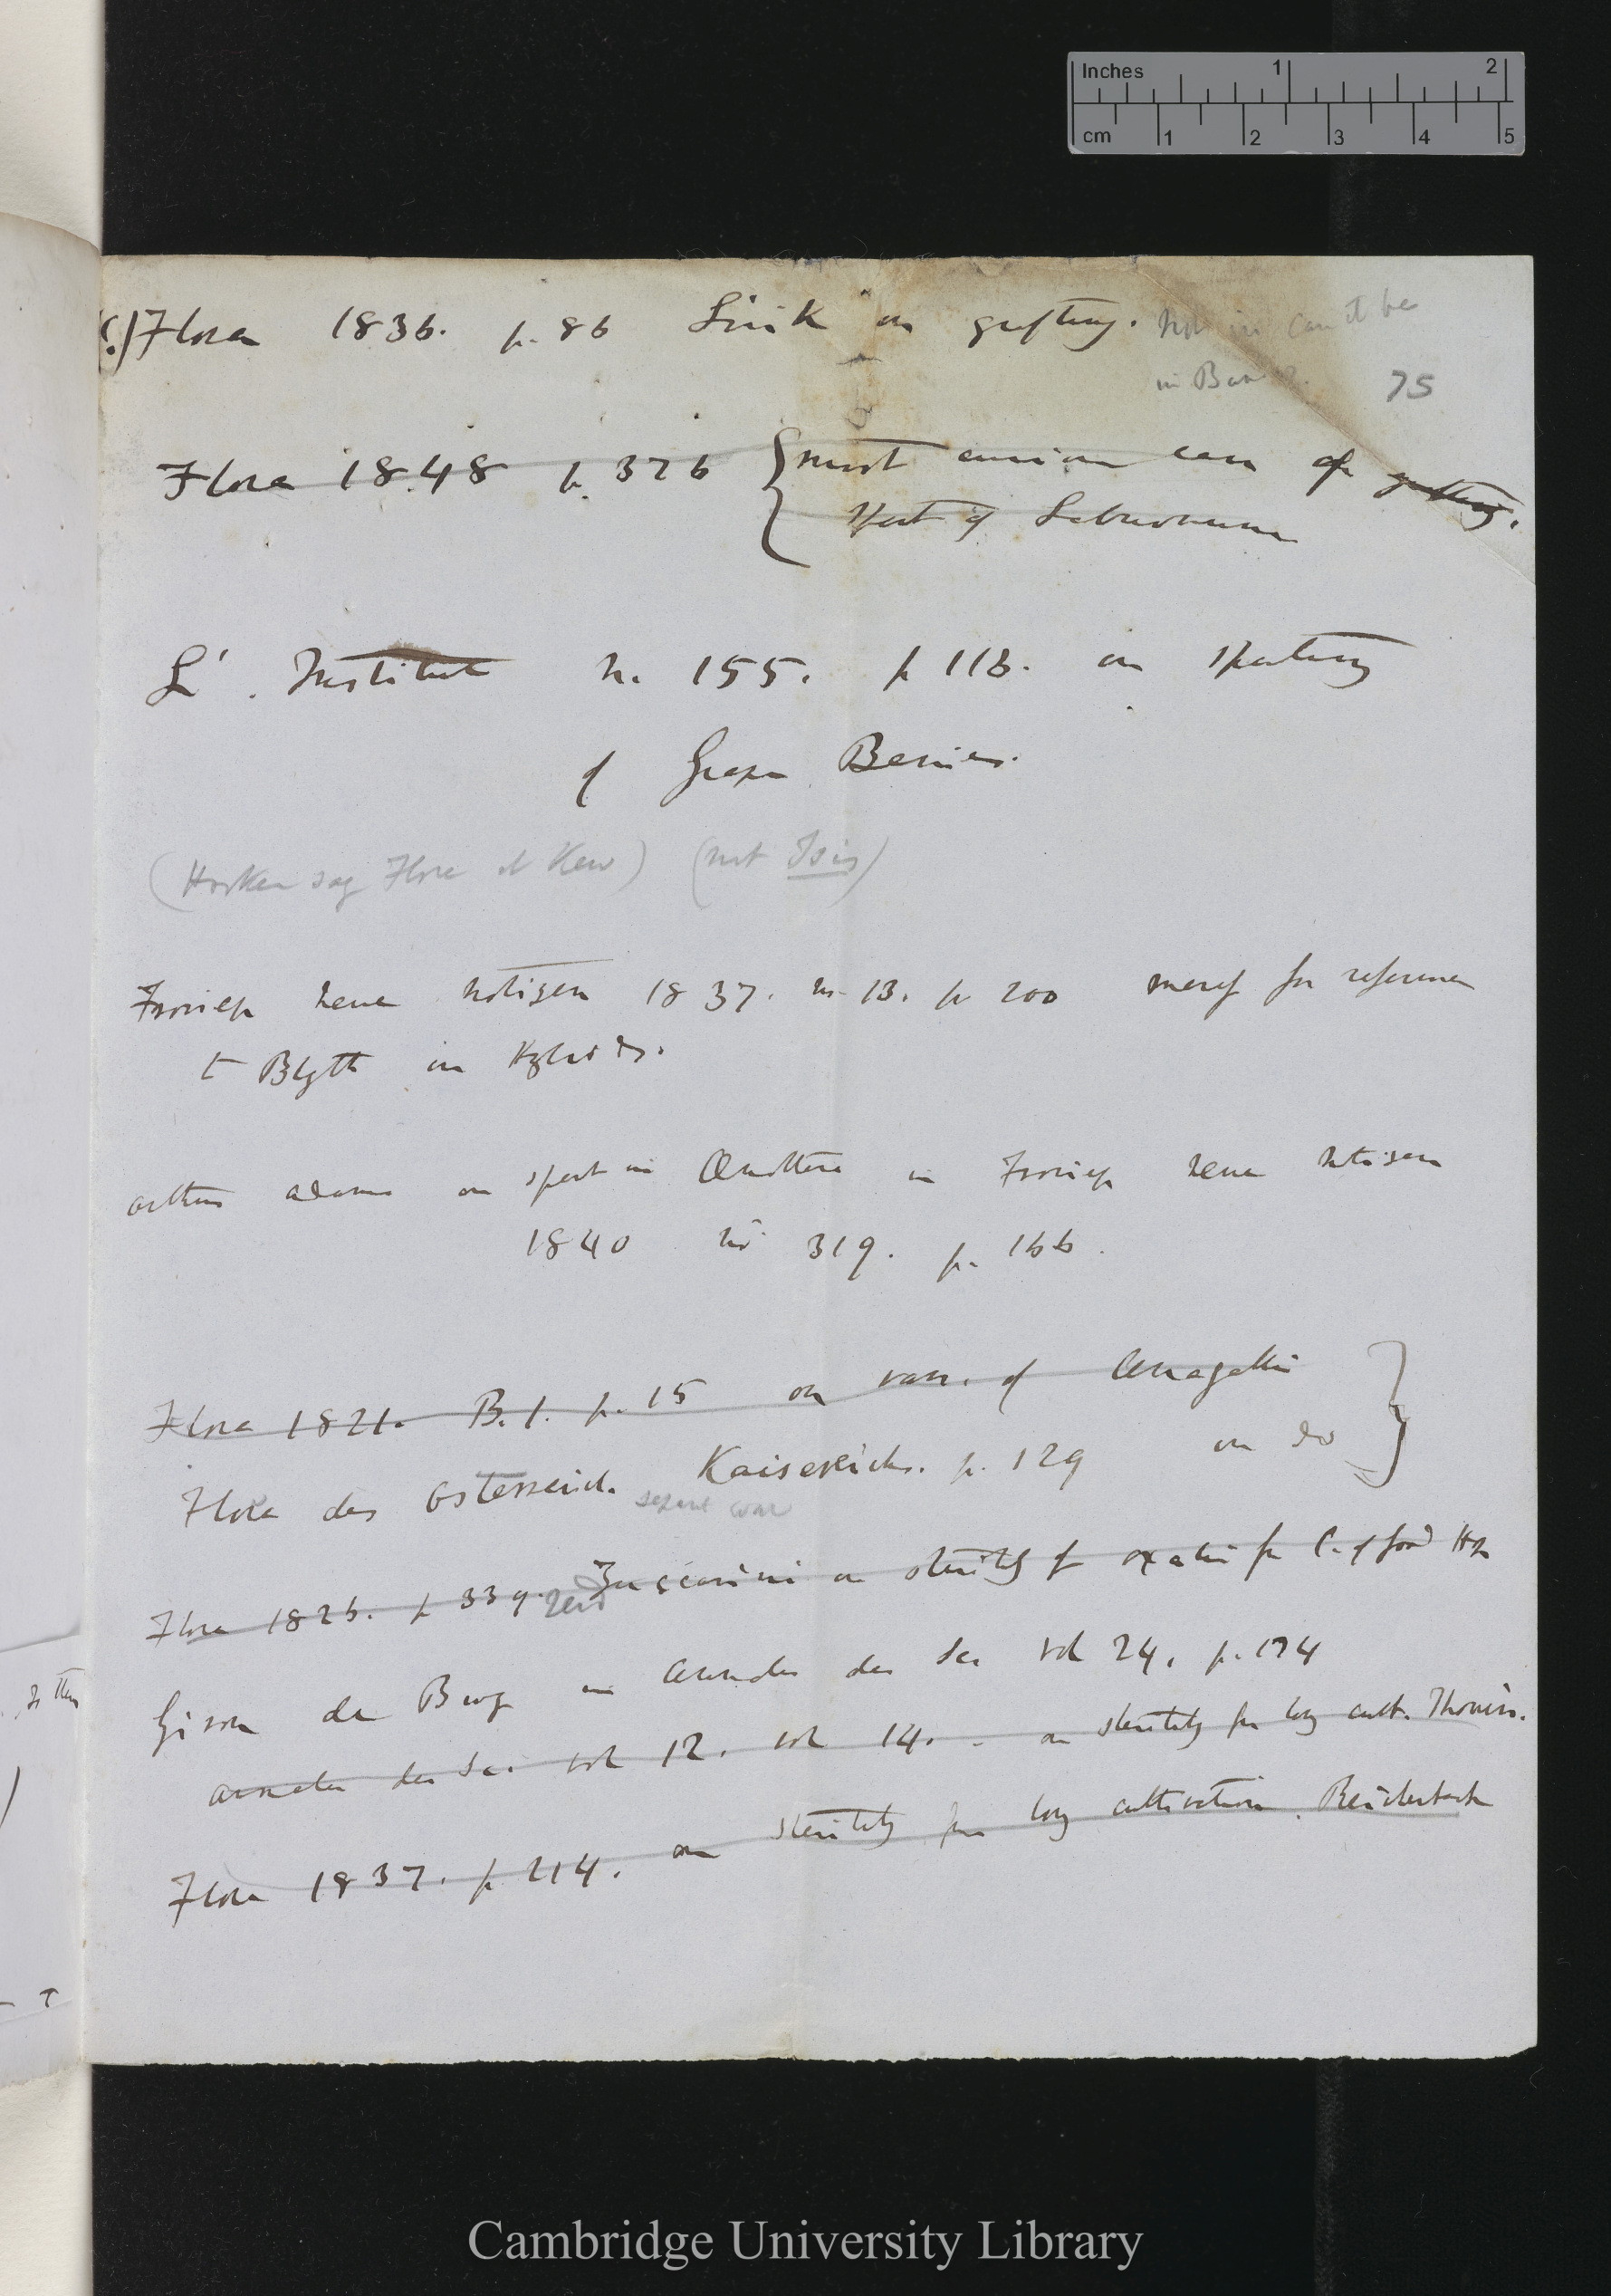 Inches 1 2
cm 1 2 3 4 5
(?) Flora 1836. p. 86 Link on grafting. Not in can it be
in 75
Flora 1848 p. 326 { most curious case of grafting.
Sport of Laburnum
L'. Institut n. 155. p 118. on sporting
of Grape Berries.
(Hooker say Flora at Kew) (not Isis)
Froriep neue notizen 1837. no 13. p 200 merely for reference
to Blyth on Hybrids.
Arthur Adams on sport in Œnothera in Froriep neue notizen
1840 no 319. p. 166.
Flora 1821. B. 1. p. 15 on vars. of Anagallis }
Flora des Österreich. Kaiserreichs. p. 129 on do
separate work
Flora 1826. p 339. Zuccarini on sterility of oxalis fr C. of Good Hope
read
Girou de Buz in Annales des Sci vol 24, p. 134
Annales des Sci vol 12. vol 14. - on sterility fr long cult. Thouin.
Flora 1837. p 214. on sterility from long cultivation. Reichenbach
Cambridge University Library